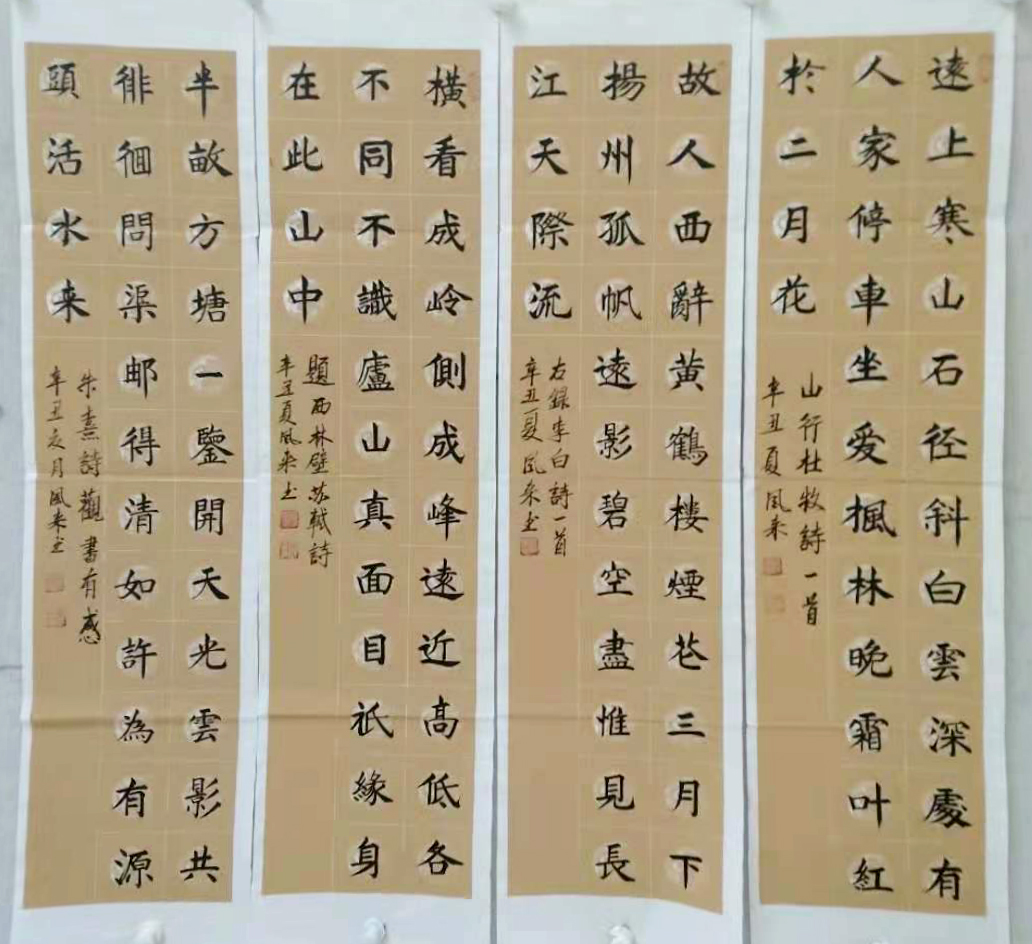 遠上寒山石径斜白雲深處有
人家停車坐爱楓林晚霜叶紅
於二月花
山行杜牧詩一首
辛丑夏風来
故人西辭黄鶴樓煙花三月下
揚州孤帆遠影碧空盡惟見長
江天際流
右録李白詩一首
辛丑夏風来书
横看成岭側成峰遠近高低各
不同不識廬山真面目祇緣身
在此山中
題西林壁苏軾詩
辛丑夏風来书
半畝方塘一鑒開天光雲影共
徘徊問渠那得清如許為有源
頭活水来
朱熹詩觀書有感
辛丑夏月風来书